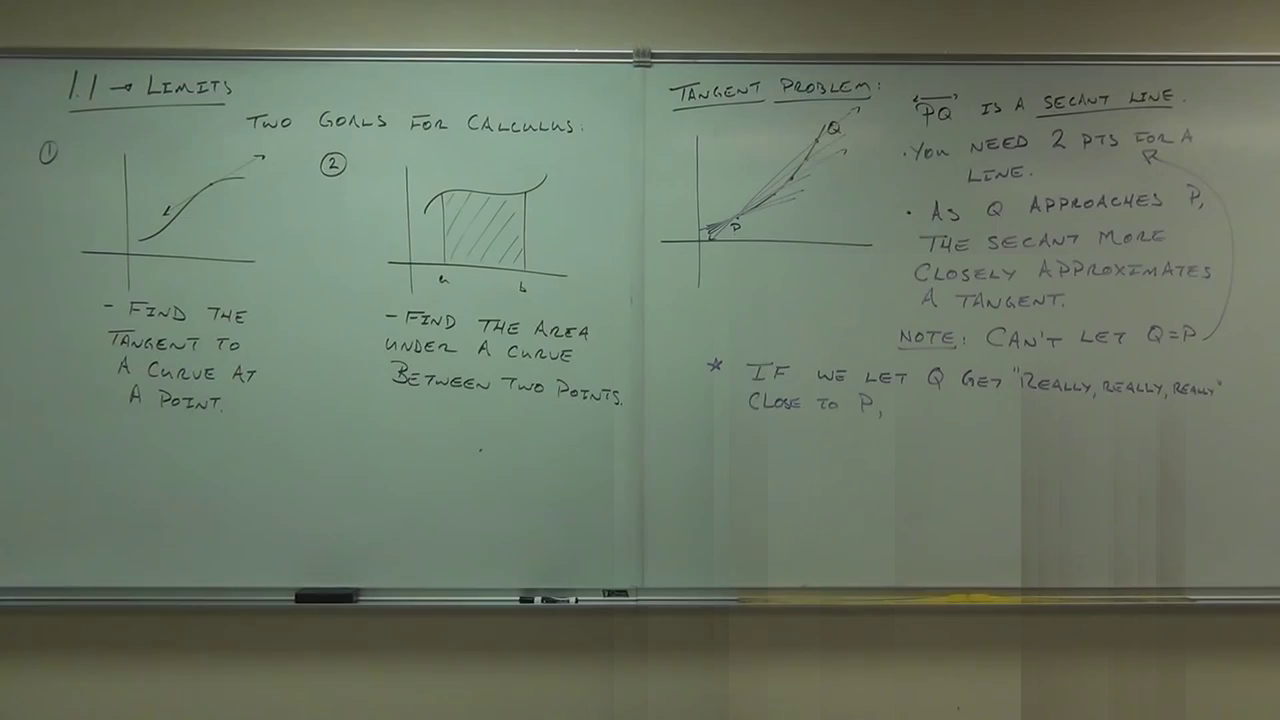 1.1 → LIMITS
TWO GOALS FOR CALCULUS:
①
②
a
b
- FIND THE
TANGENT TO
A CURVE AT
A POINT.
- FIND THE AREA
UNDER A CURVE
BETWEEN TWO POINTS.
TANGENT PROBLEM:
Q
P
PQ IS A SECANT LINE.
• YOU NEED 2 PTS FOR A
LINE.
• AS Q APPROACHES P,
THE SECANT MORE
CLOSELY APPROXIMATES
A TANGENT.
NOTE: CAN'T LET Q=P
* IF WE LET Q GET "REALLY, REALLY, REALLY"
CLOSE TO P,